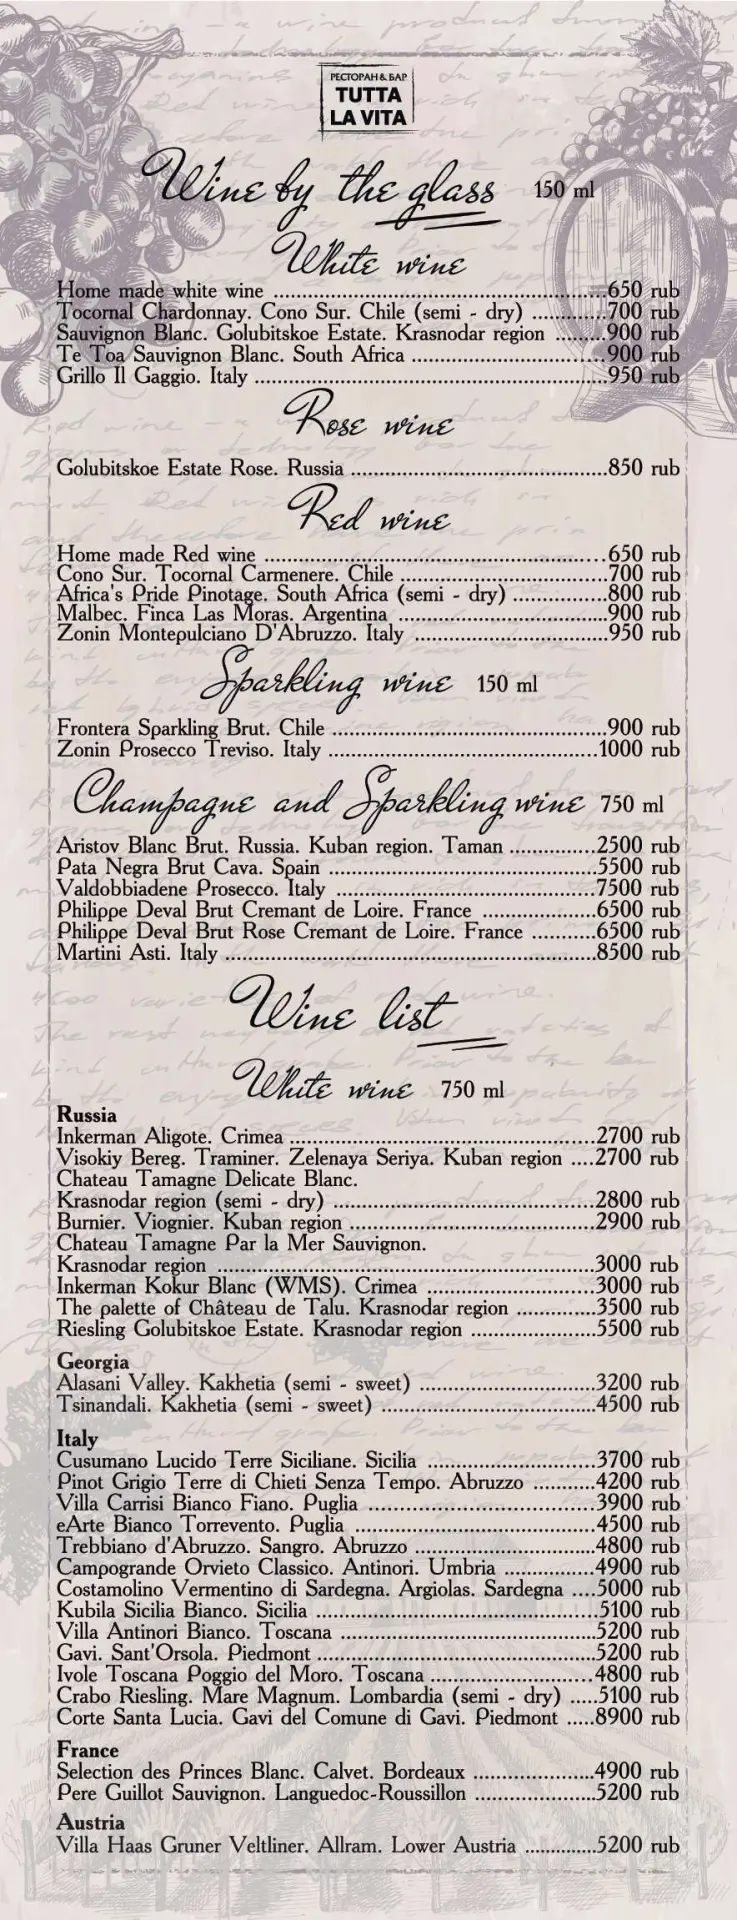 РЕСТОРАН & БАР
TUTTA
LA VITA
Wine by the glass 150 ml
White wine
Home made white wine ................................................650 rub
Tocornal Chardonnay. Cono Sur. Chile (semi - dry) ............700 rub
Sauvignon Blanc. Golubitskoe Estate. Krasnodar region .........900 rub
Te Toa Sauvignon Blanc. South Africa ..............................900 rub
Grillo Il Gaggio. Italy ....................................................950 rub
Rose wine
Golubitskoe Estate Rose. Russia ........................................850 rub
Red wine
Home made Red wine ....................................................650 rub
Cono Sur. Tocornal Carmenere. Chile ................................700 rub
Africa's Pride Pinotage. South Africa (semi - dry) ...............800 rub
Malbec. Finca Las Moras. Argentina ................................900 rub
Zonin Montepulciano D'Abruzzo. Italy ..............................950 rub
Sparkling wine 150 ml
Frontera Sparkling Brut. Chile ..........................................900 rub
Zonin Prosecco Treviso. Italy ..........................................1000 rub
Champagne and Sparkling wine 750 ml
Aristov Blanc Brut. Russia. Kuban region. Taman ..............2500 rub
Pata Negra Brut Cava. Spain ..........................................5500 rub
Valdobbiadene Prosecco. Italy ..........................................7500 rub
Philippe Deval Brut Cremant de Loire. France ..................6500 rub
Philippe Deval Brut Rose Cremant de Loire. France ...........6500 rub
Martini Asti. Italy .........................................................8500 rub
Wine list
White wine 750 ml
Russia
Inkerman Aligote. Crimea ................................................2700 rub
Visokiy Bereg. Traminer. Zelenaya Seriya. Kuban region ....2700 rub
Chateau Tamagne Delicate Blanc.
Krasnodar region (semi - dry) ..........................................2800 rub
Burnier. Viognier. Kuban region .......................................2900 rub
Chateau Tamagne Par la Mer Sauvignon.
Krasnodar region ...........................................................3000 rub
Inkerman Kokur Blanc (WMS). Crimea ...........................3000 rub
The palette of Château de Talu. Krasnodar region .............3500 rub
Riesling Golubitskoe Estate. Krasnodar region ....................5500 rub
Georgia
Alasani Valley. Kakhetia (semi - sweet) ............................3200 rub
Tsinandali. Kakhetia (semi - sweet) ..................................4500 rub
Italy
Cusumano Lucido Terre Siciliane. Sicilia ...........................3700 rub
Pinot Grigio Terre di Chieti Senza Tempo. Abruzzo ..........4200 rub
Villa Carrisi Bianco Fiano. Puglia ....................................3900 rub
eArte Bianco Torrevento. Puglia ......................................4500 rub
Trebbiano d'Abruzzo. Sangro. Abruzzo .............................4800 rub
Campogrande Orvieto Classico. Antinori. Umbria ..............4900 rub
Costamolino Vermentino di Sardegna. Argiolas. Sardegna ....5000 rub
Kubila Sicilia Bianco. Sicilia ............................................5100 rub
Villa Antinori Bianco. Toscana .........................................5200 rub
Gavi. Sant'Orsola. Piedmont ............................................5200 rub
Ivole Toscana Poggio del Moro. Toscana ..........................4800 rub
Crabo Riesling. Mare Magnum. Lombardia (semi - dry) .....5100 rub
Corte Santa Lucia. Gavi del Comune di Gavi. Piedmont .....8900 rub
France
Selection des Princes Blanc. Calvet. Bordeaux ...................4900 rub
Pere Guillot Sauvignon. Languedoc-Roussillon ...................5200 rub
Austria
Villa Haas Gruner Veltliner. Allram. Lower Austria ............5200 rub